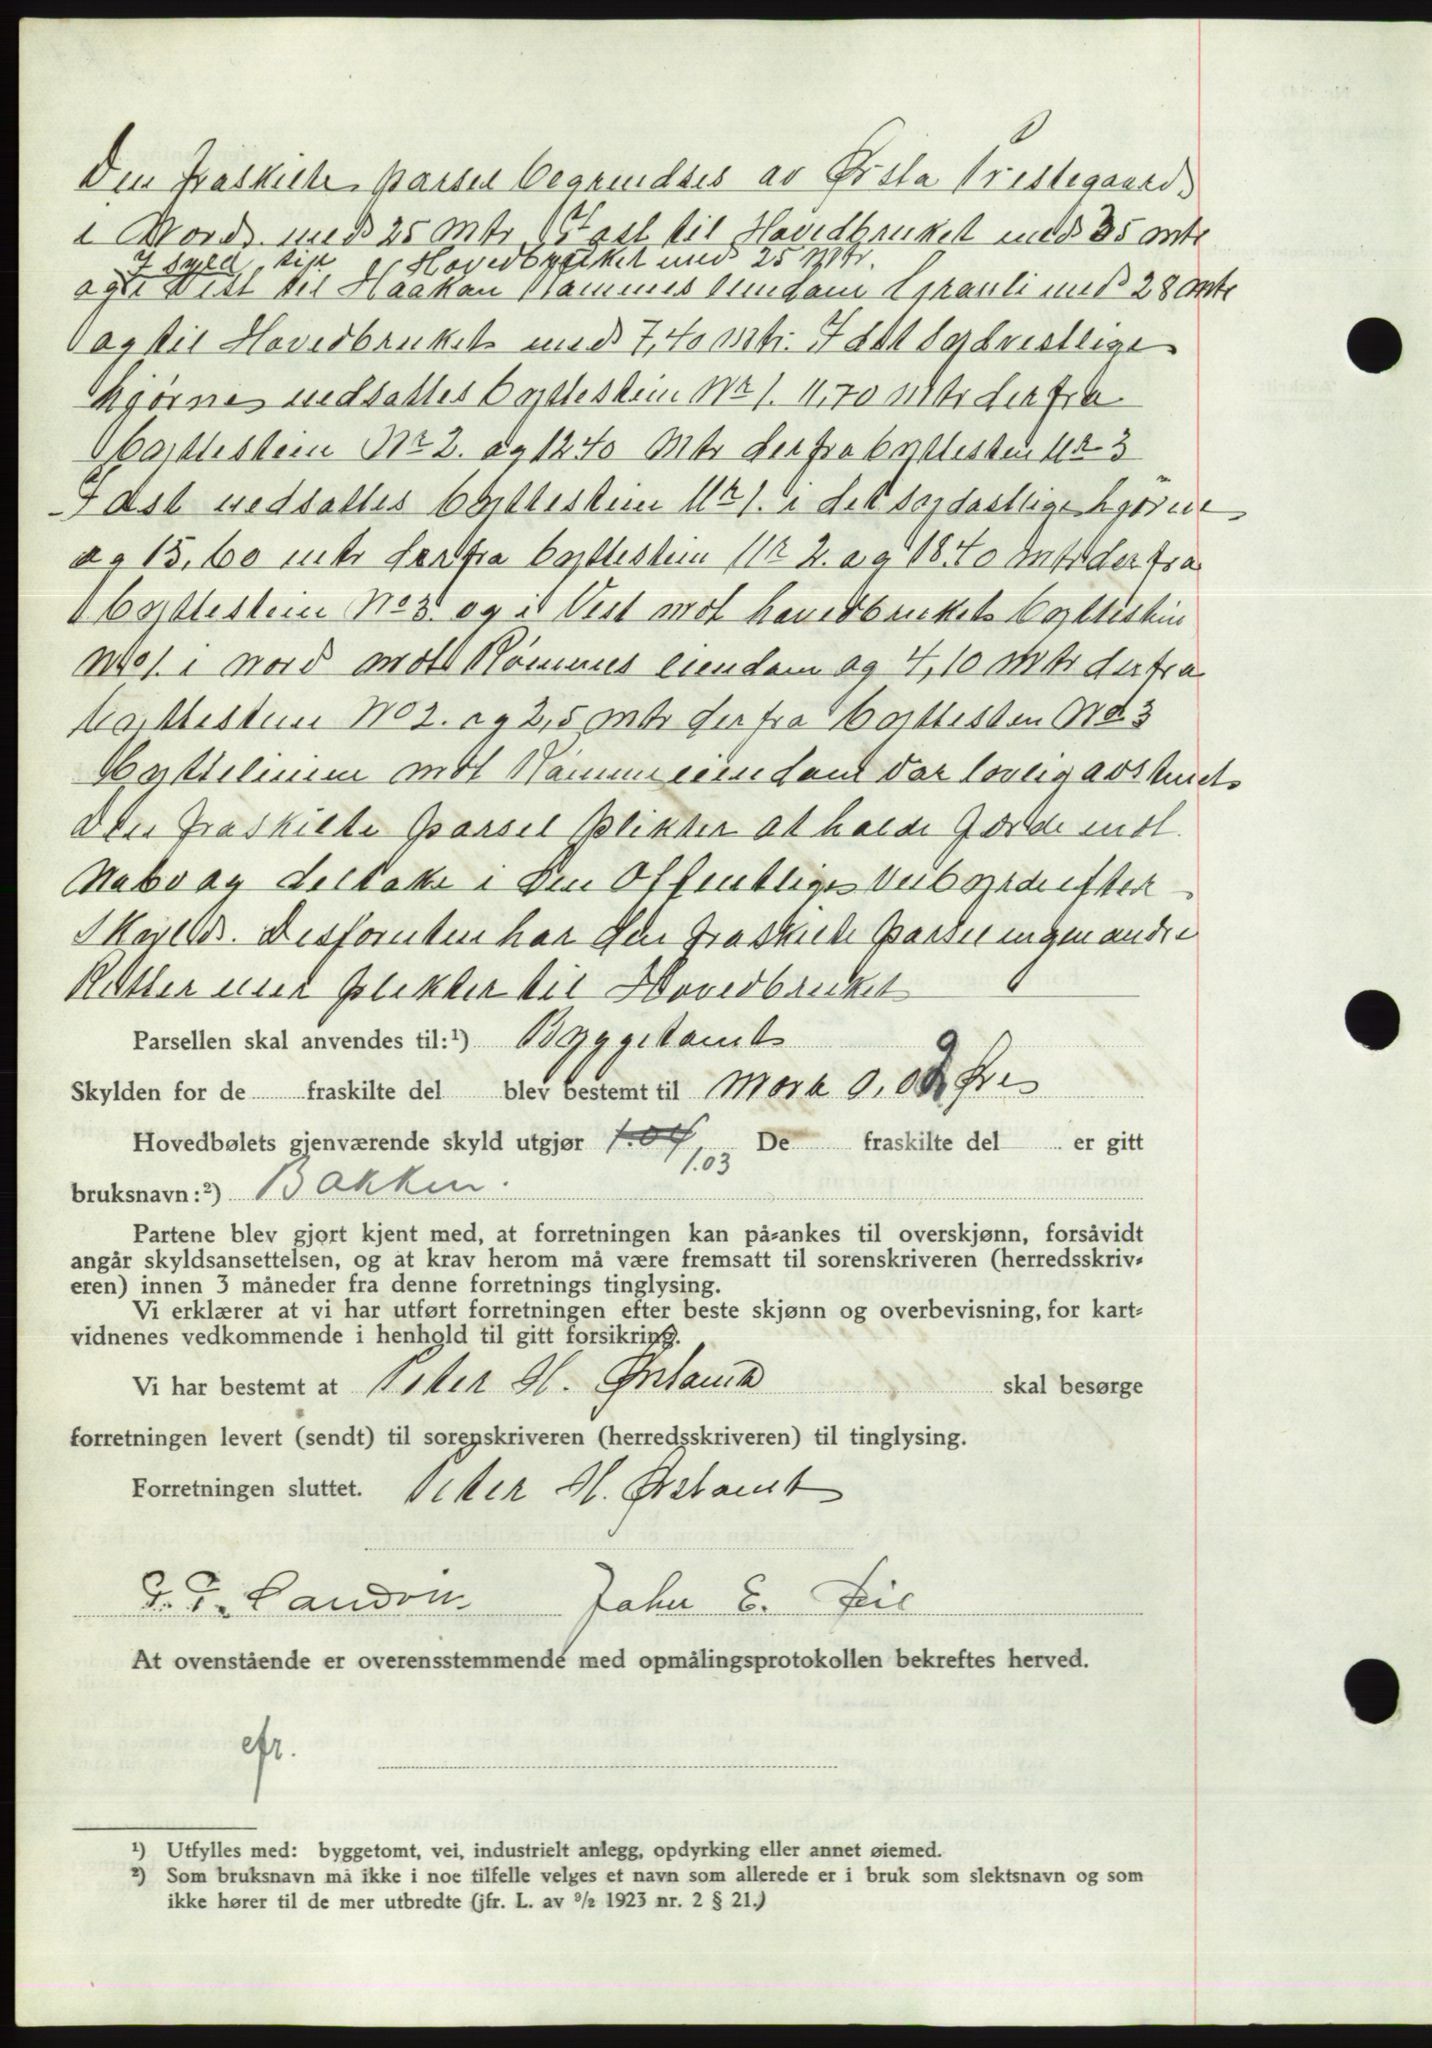 Den fraskilte parsel begrendses av Ørsta Prestegaard
i Nord med 25 Mtr. I øst til Hovedbruket med 35 mtr
I syd til Hovedbruket med 25 Mtr.
og i Vest til Haakon Rømmes eiendom Grauli med 28 mtr
og til Hovedbruket med 7,40 mtr. I det sydvestlige
hjørne nedsattes byttestein Nr 1. 11,70 Mtr derfra
byttestein Nr 2. og 12.40 Mtr derfra byttestein Nr 3
I øst nedsattes byttestein Nr 1. i det sydøstlige hjørne
og 15,60 mtr derfra byttestein Nr 2. og 18.40 mtr derfra
byttestein No 3. og i Vest mot hovedbruket byttestein
No 1. i nord mot Rømmes eiendom og 4,10 mtr derfra
byttestein No 2. og 2,5 mtr derfra byttesten No 3
byttelinien mot Rømmes eiendom var lovlig avstukt
Den fraskilte parsel plikter at holde Gjerde mot
Nabo og deltake i den Offentlige Veibyrde efter
Skyld. Desforuten har den fraskilte parsel ingen andre
Retter eller plikter til Hovedbruket
Parsellen skal anvendes til:¹) Byggetomt
Skylden for de fraskilte del blev bestemt til Mark 0,02 Øre
9
Hovedbølets gjenværende skyld utgjør 1.04 De fraskilte del er gitt
1.03
bruksnavn:²) Bakken.
Partene blev gjort kjent med, at forretningen kan på-ankes til overskjønn, forsåvidt
angår skyldsansettelsen, og at krav herom må være fremsatt til sorenskriveren (herredsskriv-
eren) innen 3 måneder fra denne forretnings tinglysing.
Vi erklærer at vi har utført forretningen efter beste skjønn og overbevisning, for kart-
vidnenes vedkommende i henhold til gitt forsikring.
Vi har bestemt at Peter H. Ørstavik skal besørge
forretningen levert (sendt) til sorenskriveren (herredsskriveren) til tinglysing.
Forretningen sluttet. Peter H. Ørstavik
John E.
At ovenstående er overensstemmende med opmålingsprotokollen bekreftes herved.
efr.
¹) Utfylles med: byggetomt, vei, industrielt anlegg, opdyrking eller annet øiemed.
²) Som bruksnavn må ikke i noe tilfelle velges et navn som allerede er i bruk som slektsnavn og som
ikke hører til de mer utbredte (jfr. L. av ⁹/₂ 1923 nr. 2 § 21.)